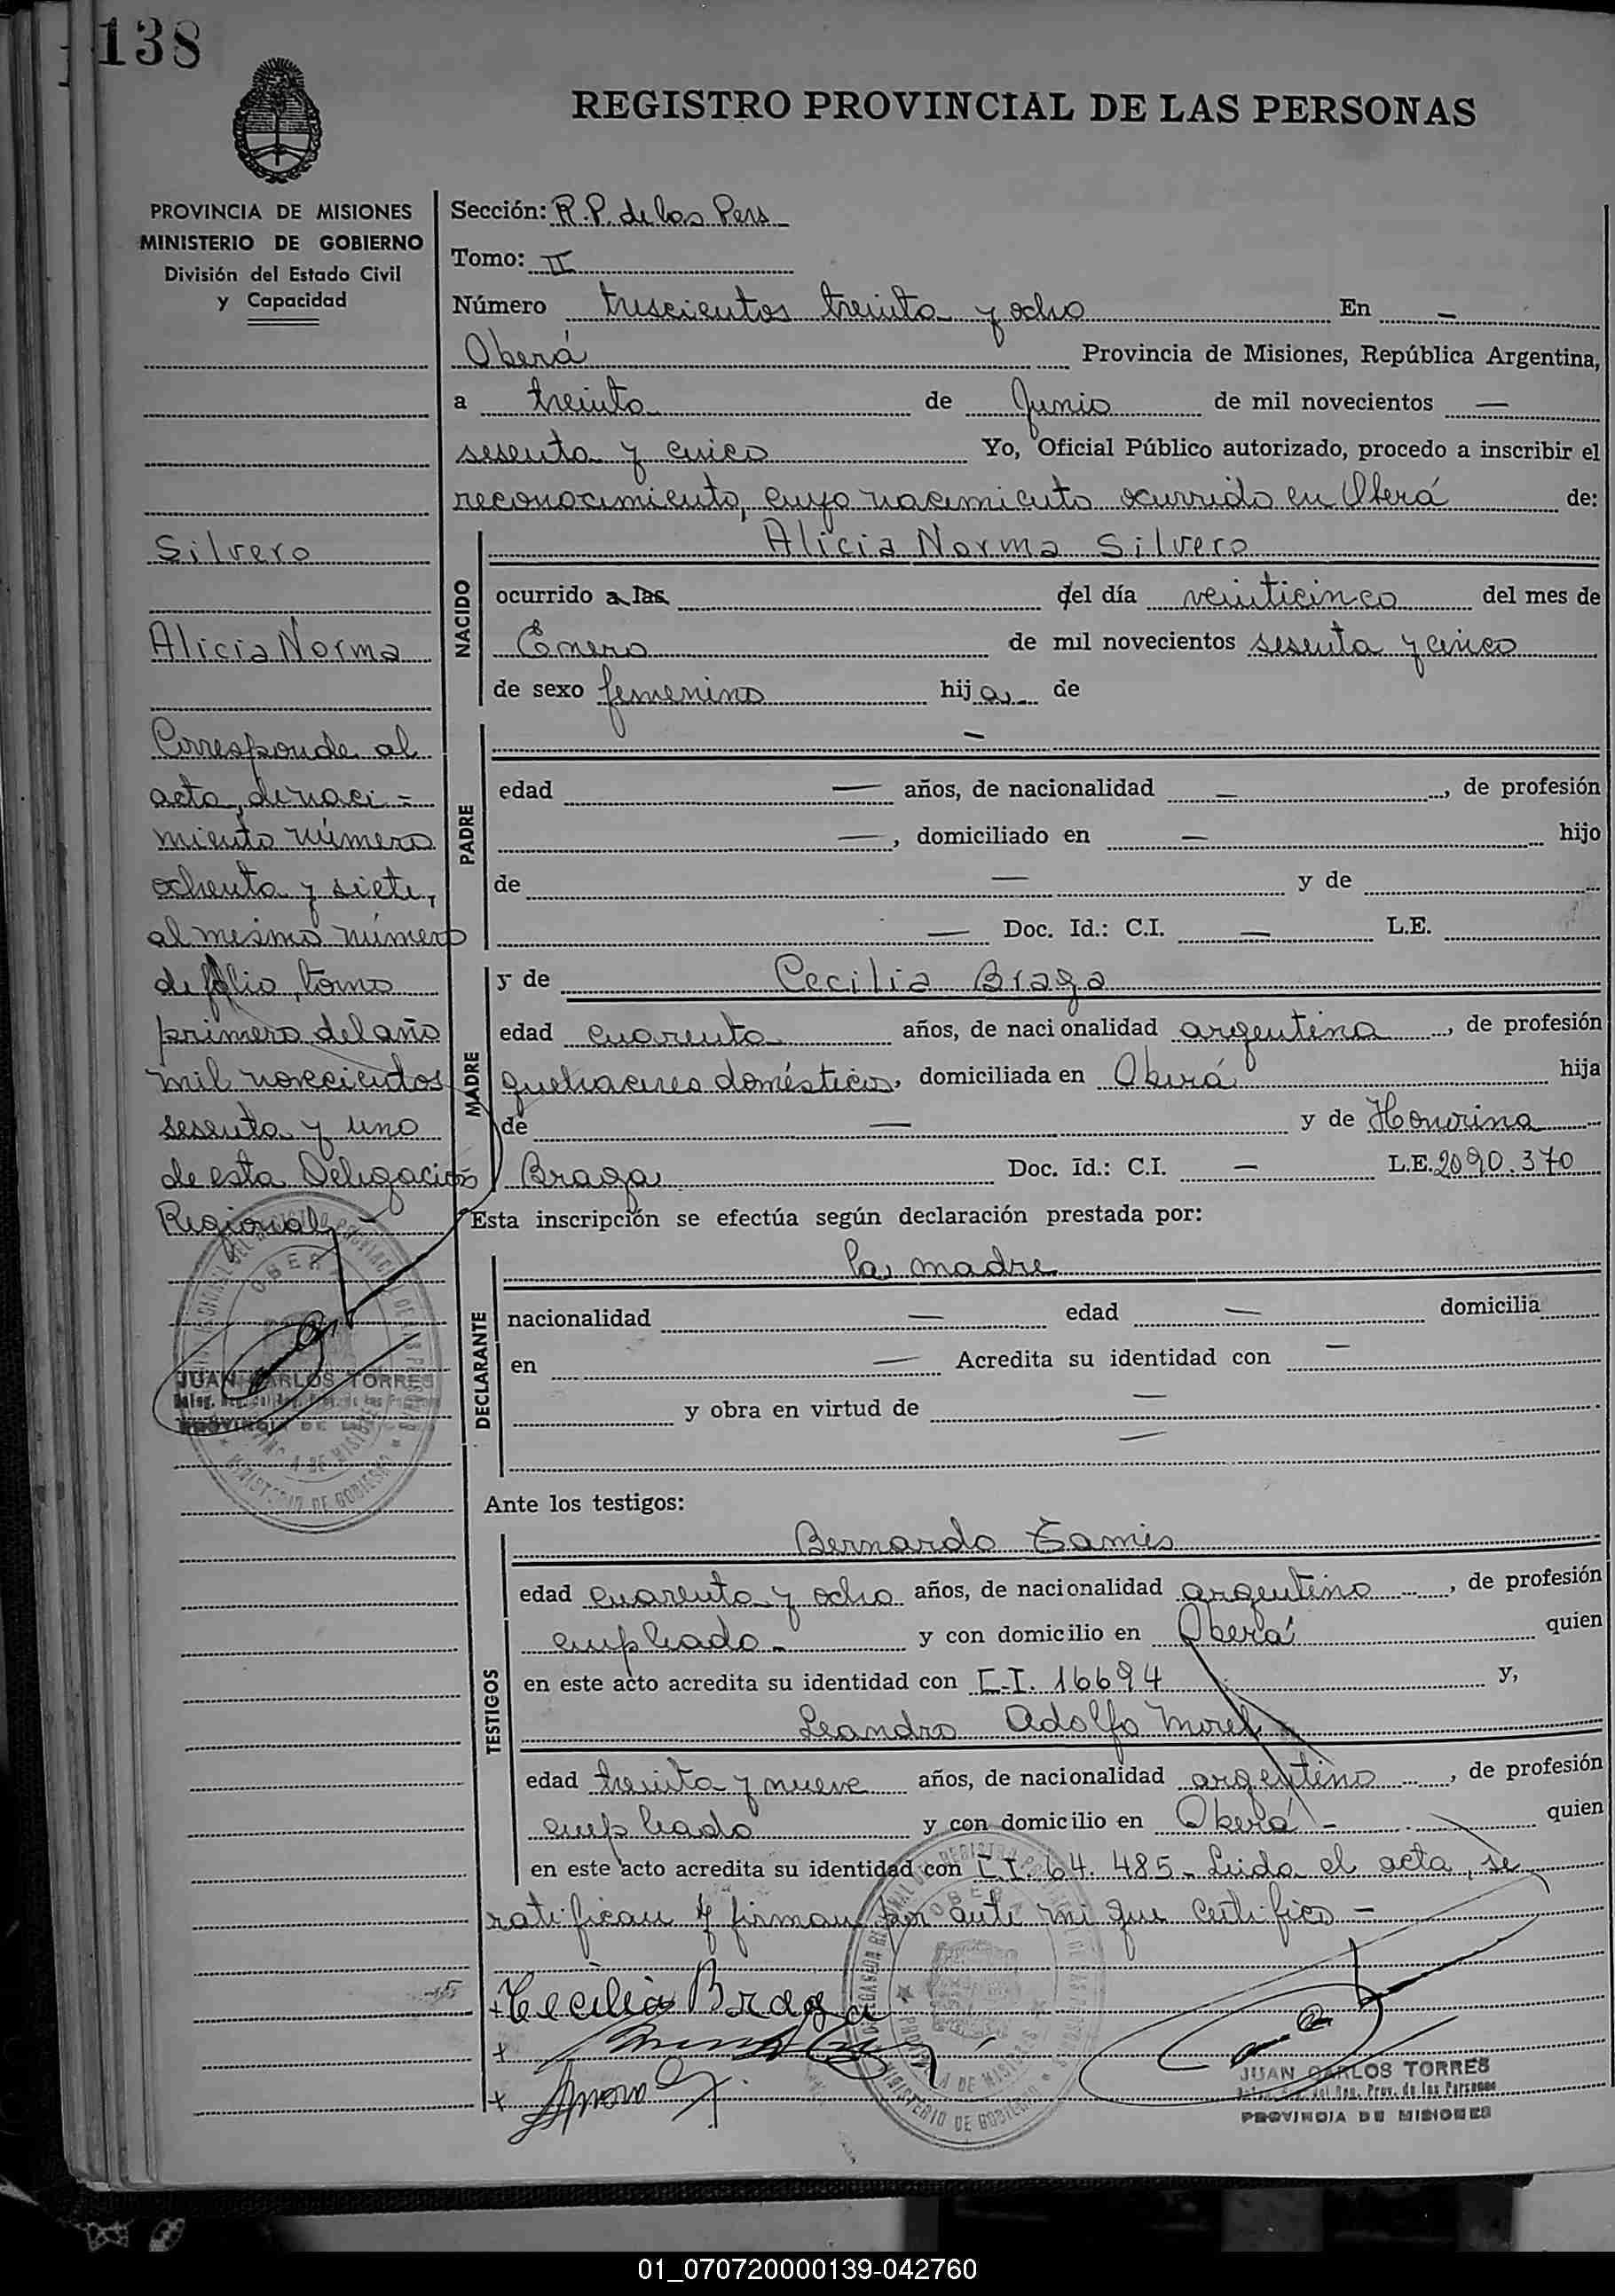 138
REGISTRO PROVINCIAL DE LAS PERSONAS
PROVINCIA DE MISIONES
MINISTERIO DE GOBIERNO
División del Estado Civil
y Capacidad
Silvero
Alicia Norma
Corresponde al
acta, de naci-
miento número
ochenta y siete,
al mismo número
de folio, tomo
primero del año
mil novecientos
sesenta y uno
de esta Delegación
Regional.-
JUAN CARLOS TORRES
PROVINCIA DE MISIONES
Sección: R.P. de las Pers
Tomo: II
Número trescientos treinta y ocho En —
Oberá Provincia de Misiones, República Argentina,
a treinta de Junio de mil novecientos —
sesenta y cinco Yo, Oficial Público autorizado, procedo a inscribir el
reconocimiento, cuyo nacimiento ocurrido en Oberá de:
NACIDO
Alicia Norma Silvero
ocurrido a las del día veinticinco del mes de
Enero de mil novecientos sesenta y cinco
de sexo femenino hija de
PADRE
—
edad — años, de nacionalidad —, de profesión
—, domiciliado en — hijo
de — y de
— Doc. Id.: C.I. — L.E.
MADRE
y de Cecilia Braga
edad cuarenta años, de nacionalidad argentina, de profesión
quehaceres domésticos, domiciliada en Oberá hija
de — y de Honorina
Braga Doc. Id.: C.I. — L.E. 2090.370
Esta inscripción se efectúa según declaración prestada por:
DECLARANTE
la madre
nacionalidad — edad — domicilia
en — Acredita su identidad con —
y obra en virtud de —
—
Ante los testigos:
TESTIGOS
Bernardo Tamis
edad cuarenta y ocho años, de nacionalidad argentino, de profesión
empleado- y con domicilio en Oberá quien
en este acto acredita su identidad con C.I. 16694 y,
Leandro Adolfo Morel
edad treinta y nueve años, de nacionalidad argentino, de profesión
empleado y con domicilio en Oberá- quien
en este acto acredita su identidad con C.I. 64.485- Leida el acta, se
ratifican y firman por ante mi que certifico-
Cecilia Braga
JUAN CARLOS TORRES
Deleg. Reg. del Reg. Prov. de las Personas
PROVINCIA DE MISIONES
01_070720000139-042760